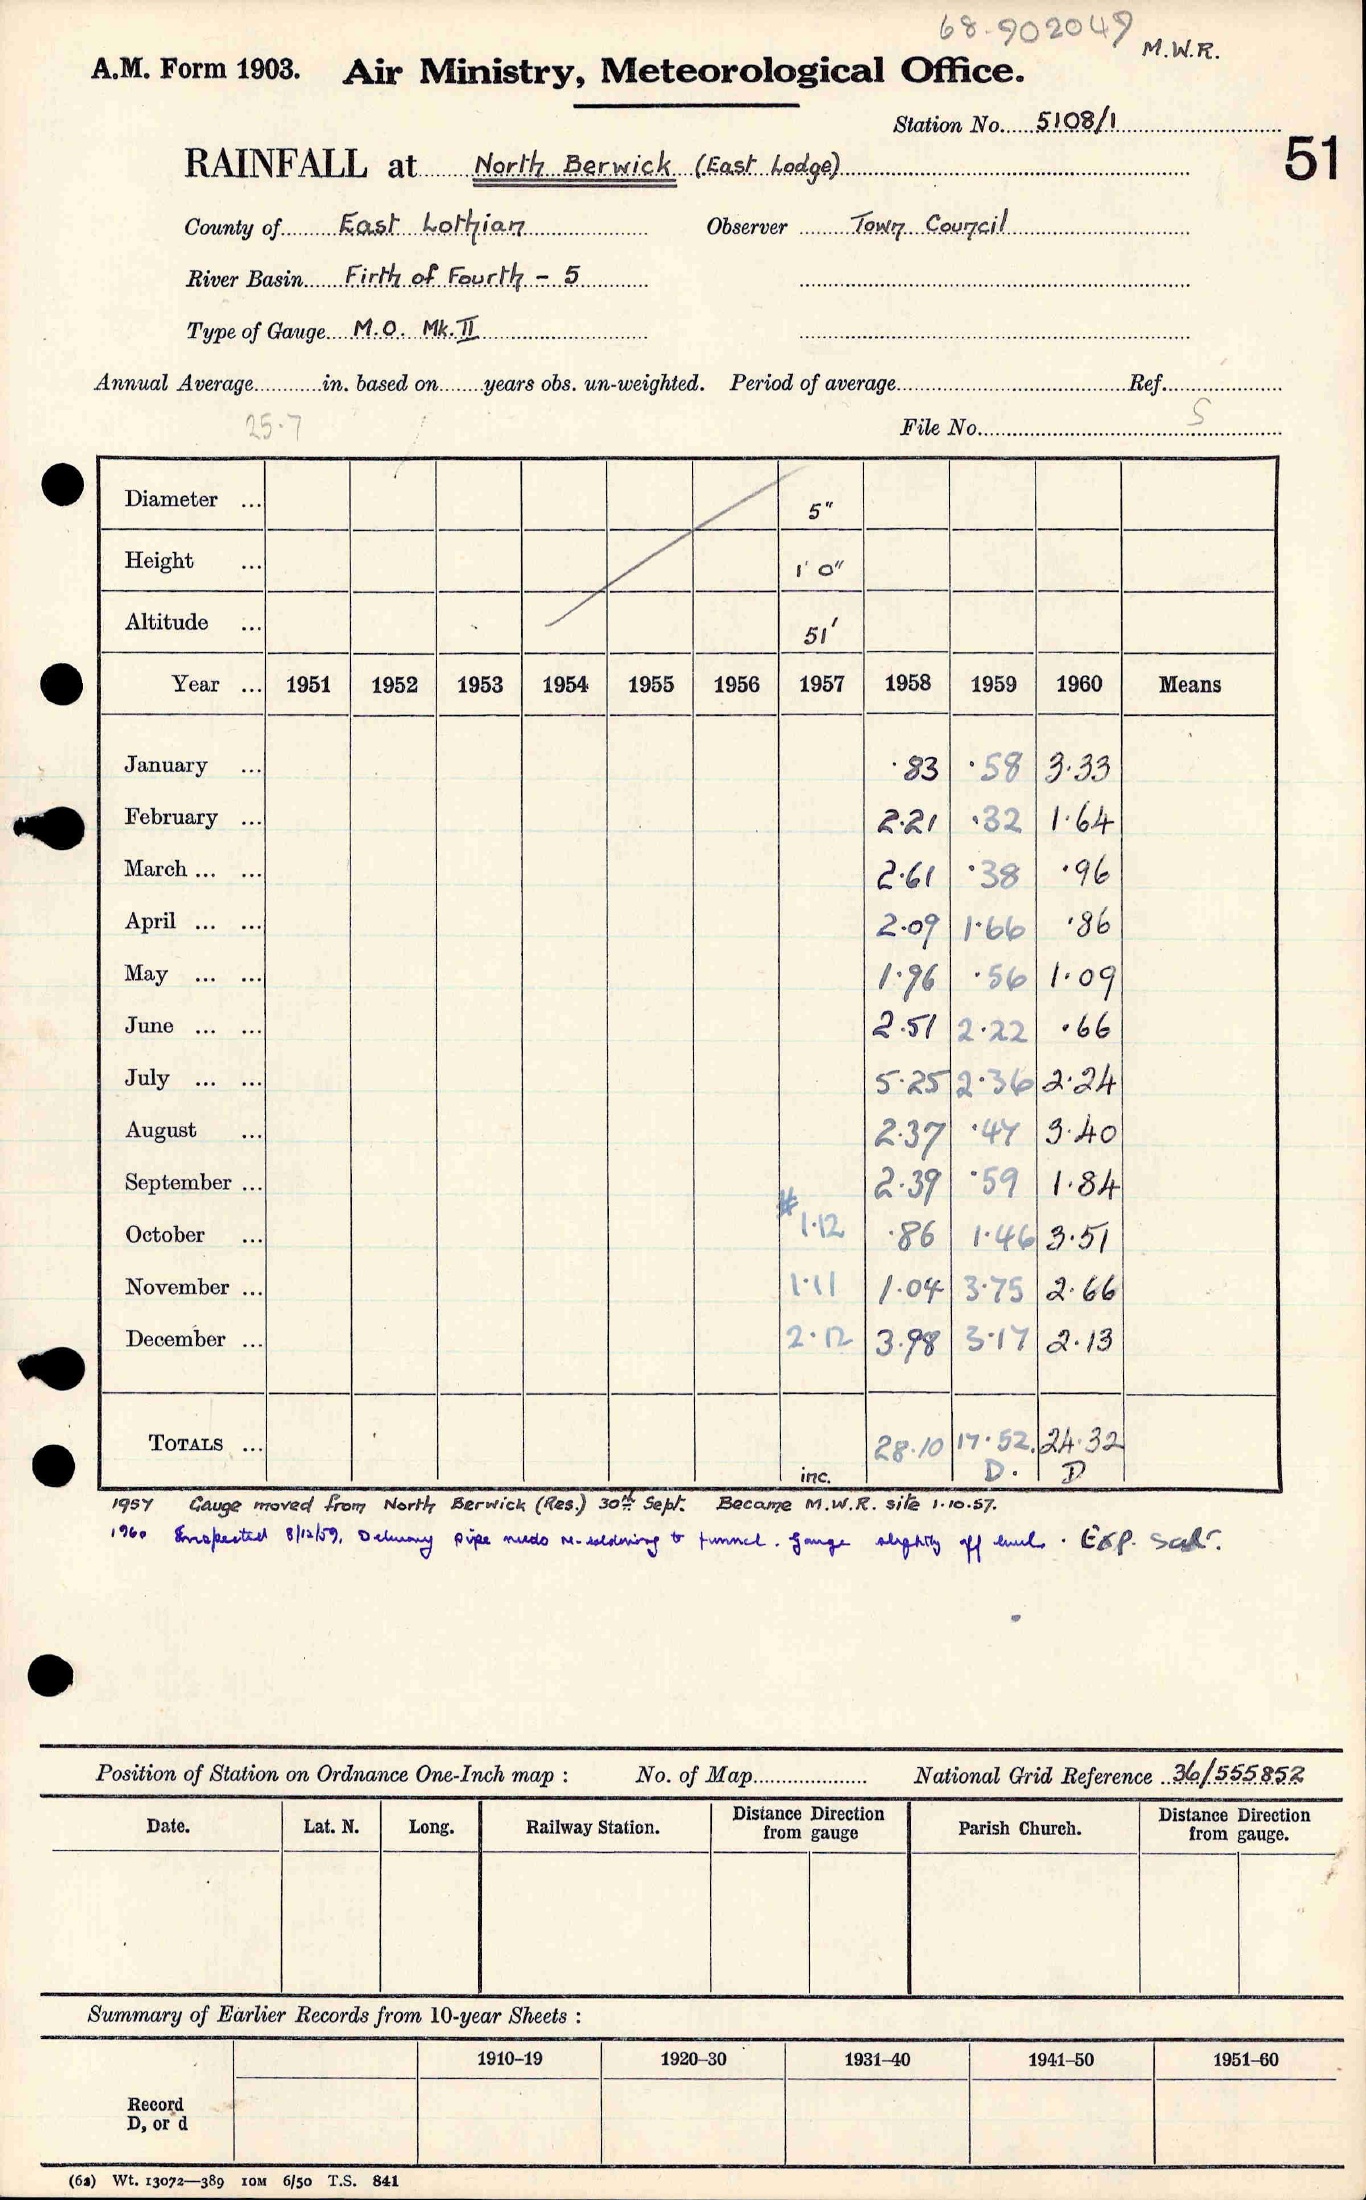 68.902049
M.W.R.
A.M. Form 1903. Air Ministry, Meteorological Office.
Station No. 5108/1
51
RAINFALL at North Berwick (East Lodge)
County of East Lothian Observer Town Council
River Basin Firth of Fourth - 5
Type of Gauge M.O. Mk.II
Annual Average in. based on years obs. un-weighted. Period of average Ref.
25.7 File No. S
Diameter ... 5"
Height ... 1' 0"
Altitude ... 51'
Year ... 1951 1952 1953 1954 1955 1956 1957 1958 1959 1960 Means
January ... .83 .58 3.33
February ... 2.21 .32 1.64
March ... ... 2.61 .38 .96
April ... ... 2.09 1.66 .86
May ... ... 1.96 .56 1.09
June ... ... 2.51 2.22 .66
July ... ... 5.25 2.36 2.24
August ... 2.37 .47 3.40
September ... 2.39 .59 1.84
October ... # 1.12 .86 1.46 3.51
November ... 1.11 1.04 3.75 2.66
December ... 2.12 3.98 3.17 2.13
TOTALS ... inc. 28.10 17.52. 24.32
D. D
1957 Gauge moved from North Berwick (Res.) 30th Sept. Became M.W.R. site 1.10.57.
1960 Inspected 8/12/59. Delivery pipe needs re-soldering to funnel. Gauge slightly off level. Exp. sat.
Position of Station on Ordnance One-Inch map : No. of Map National Grid Reference 36/555852
Date. Lat. N. Long. Railway Station. Distance Direction from gauge Parish Church. Distance Direction from gauge.
Summary of Earlier Records from 10-year Sheets :
1910–19 1920–30 1931–40 1941–50 1951–60
Record
D, or d
(62) Wt. 13072—389 10M 6/50 T.S. 841